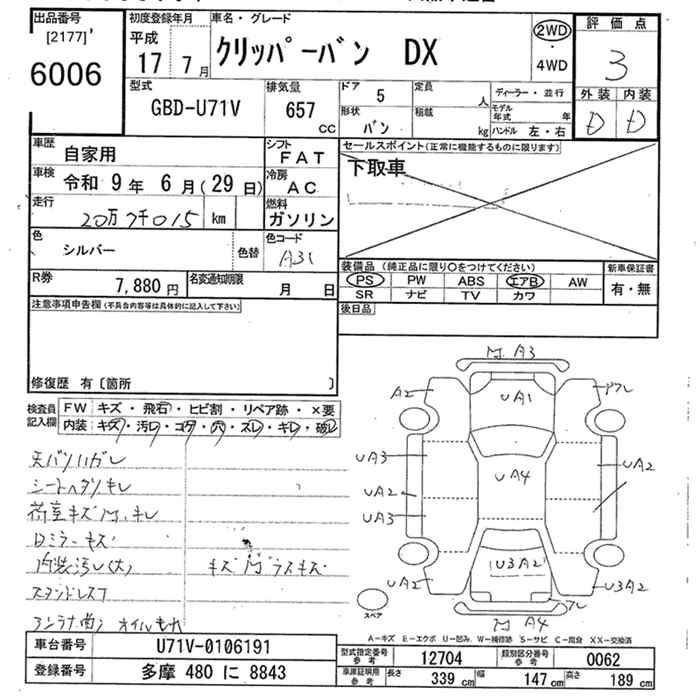 出品番号
[2177]
6006
初度登録年月
平成
17年 7月
車名・グレード
クリッパーバン DX
2WD
・
4WD
評価点
3
外装 内装
D D
型式
GBD-U71V
排気量
657
CC
ドア 5
形状 バン
定員 人
積載 kg
ディーラー・並行
モデル年式 年
ハンドル 左・右
車歴
自家用
車検 令和 9年 6月(29日)
走行
20万7千015 km
シフト
FAT
冷房
AC
燃料
ガソリン
セールスポイント(正常に機能するものに限ります)
下取車
色
シルバー
色替
色コード
A31
R券
7,880円
名変通知期限
月 日
装備品(純正品に限り○をつけてください)
PS PW ABS エアB AW
SR ナビ TV カワ
新車保証書
有・無
後日品
注意事項申告欄(不具合内容等は具体的に記入して下さい)
修復歴 有〔箇所 〕
検査員記入欄
FW キズ・飛石・ヒビ割・リペア跡・×要
内装: キズ・汚レ・コゲ・穴・スレ・キレ・破レ
天バリハガレ
シートヘタリキレ
荷室キズ凹、キレ
Dミラーキズ
内装汚レ(大)
キズ凹ラスキズ
スタンドレス
アンテナ曲り オイルもれ
凹 A3
A2
UA1
ワレ
UA3
UA2
UA4
UA2
UA3
UA2
U3A2
U3A2
ワレ
凹 A4
スペア
A-キズ E-エクボ U-凹み W-補修跡 S-サビ C-腐食 XX-交換済
車台番号
U71V-0106191
登録番号
多摩 480 に 8843
型式指定番号 参考
12704
類別区分番号 参考
0062
車庫証明用 参考
長さ 339 cm
幅 147 cm
高さ 189 cm